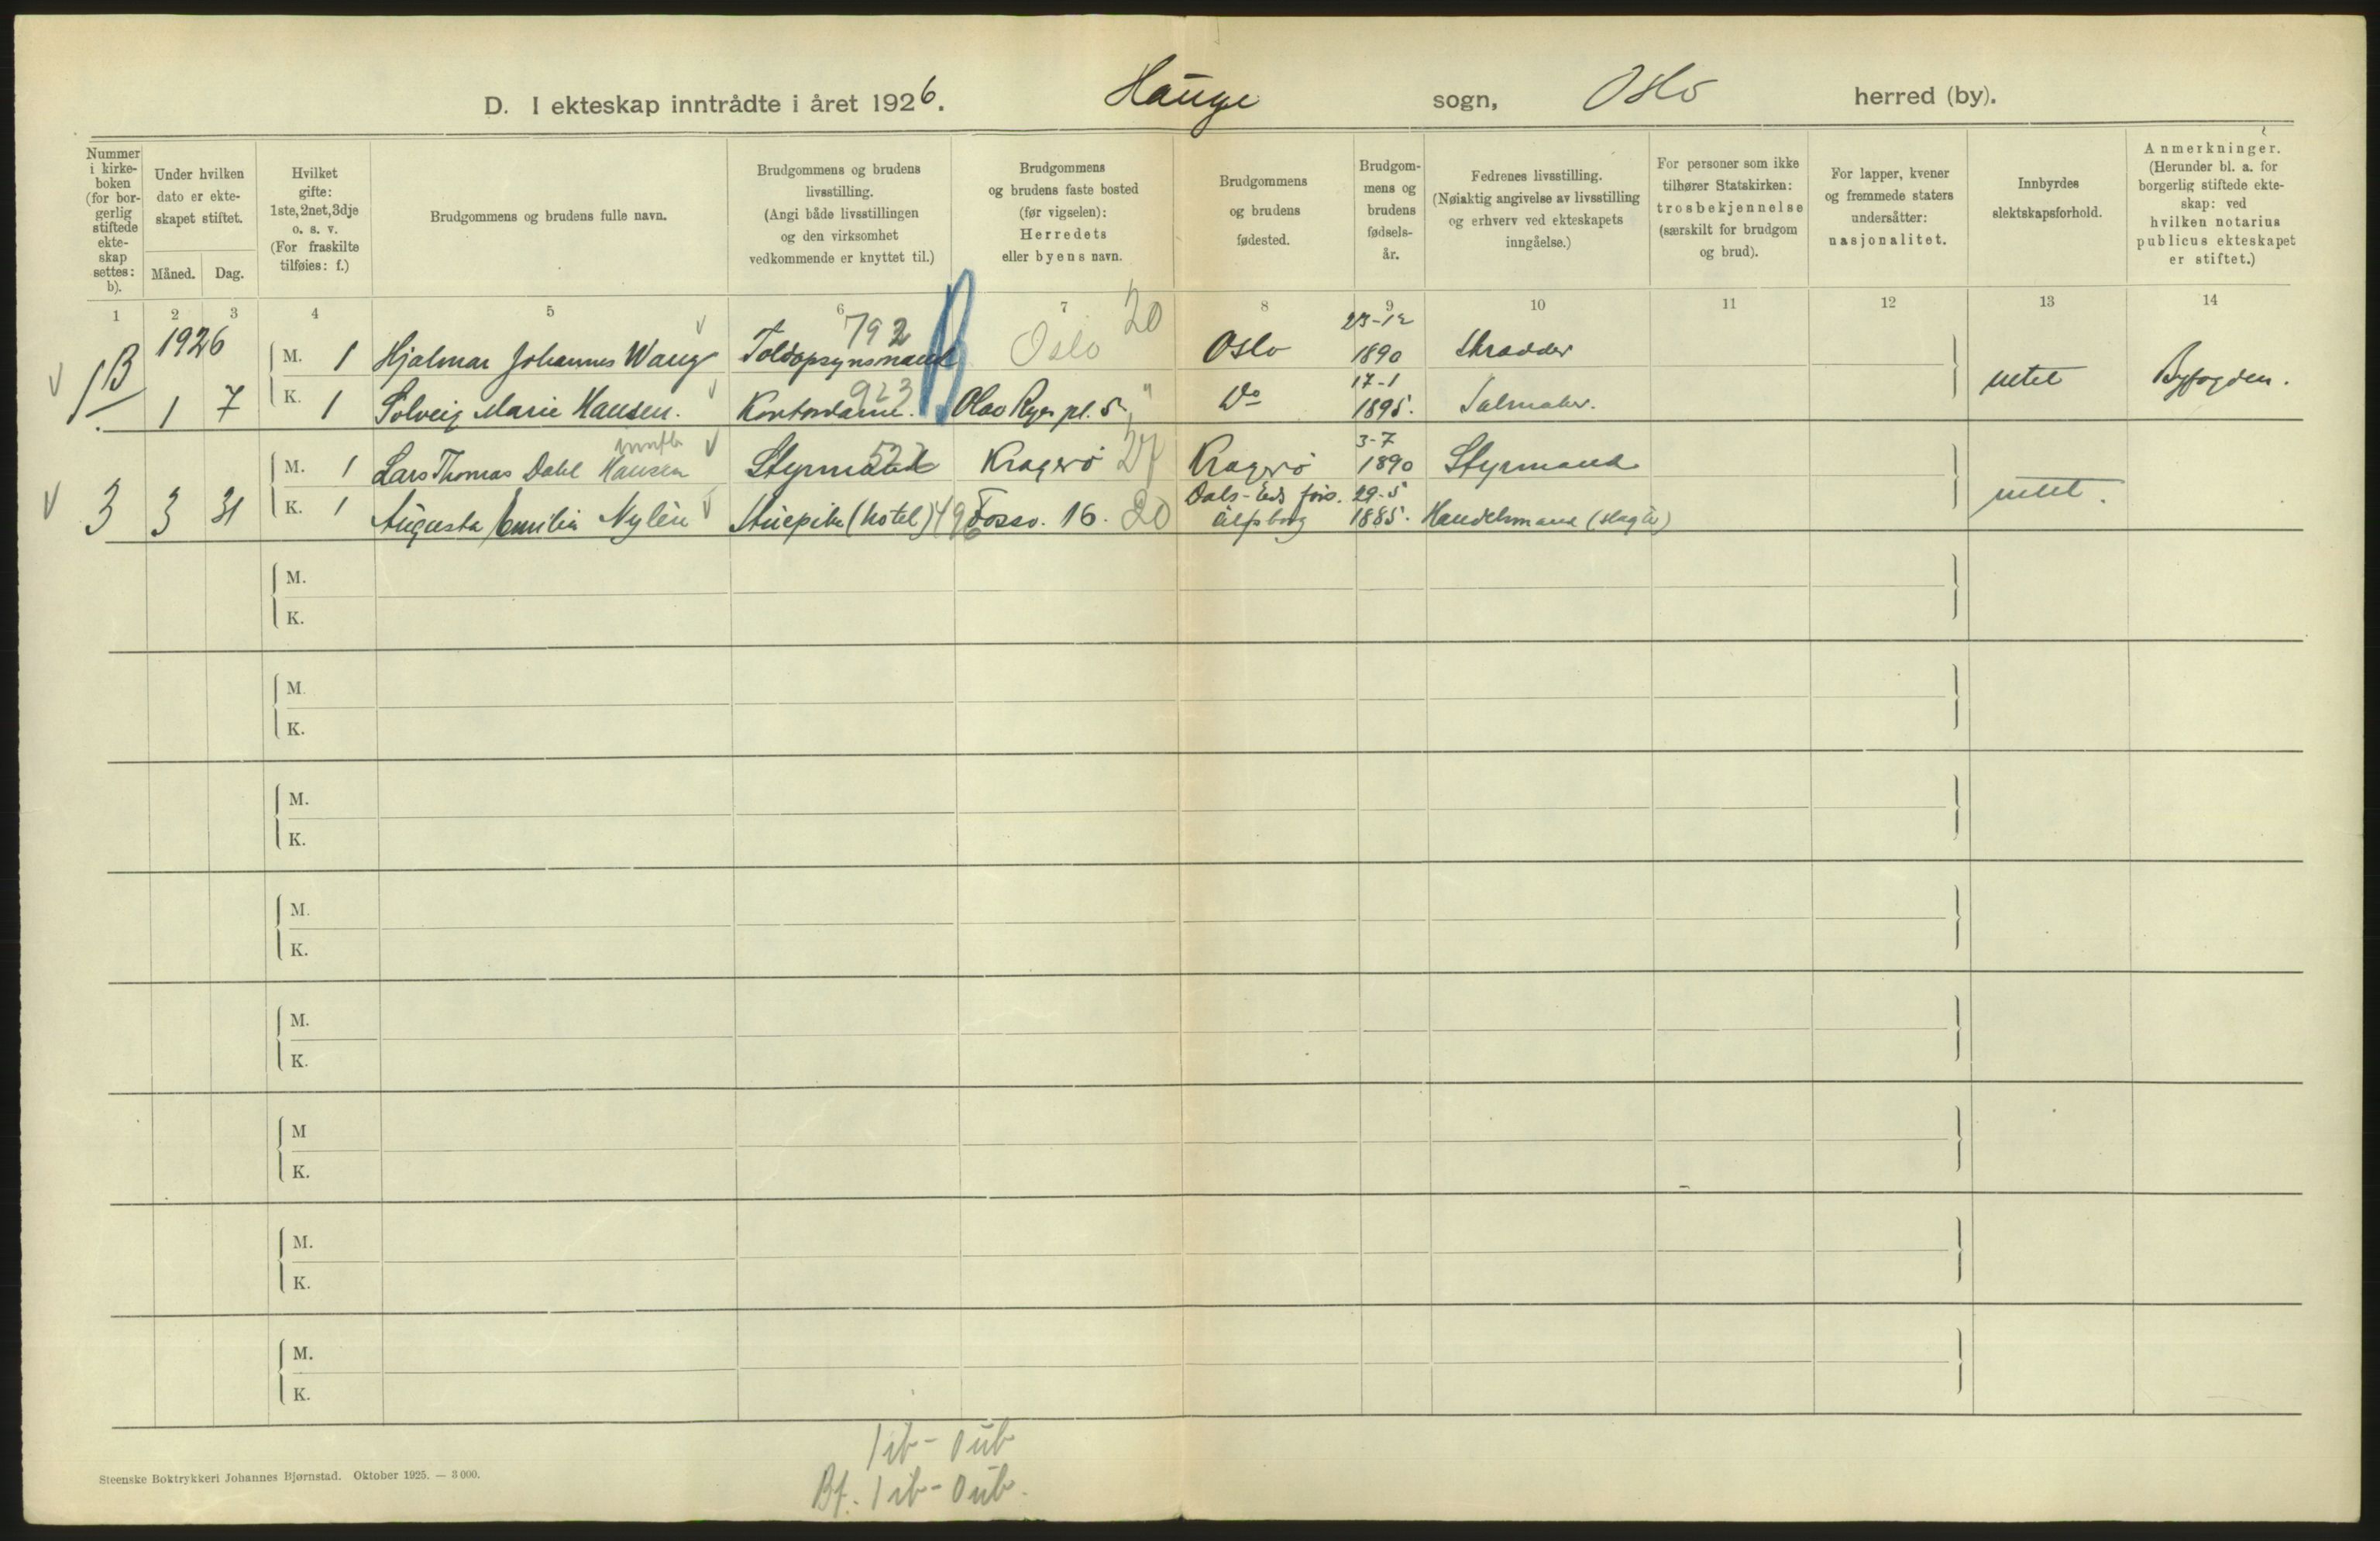 D. I ekteskap inntrådte i året 1926. Hauge sogn, Oslo herred (by).
Nummer i kirke- boken (for bor- gerlig stiftede ekte- skap settes: b).
Under hvilken dato er ekte- skapet stiftet.
Måned. Dag.
Hvilket gifte: 1ste, 2net, 3dje o. s. v. (For fraskilte tilføies: f.)
Brudgommens og brudens fulle navn.
Brudgommens og brudens livsstilling. (Angi både livsstillingen og den virksomhet vedkommende er knyttet til.)
Brudgommens og brudens faste bosted (før vigselen): Herredets eller byens navn.
Brudgommens og brudens fødested.
Brudgom- mens og brudens fødsels- år.
Fedrenes livsstilling. (Nøiaktig angivelse av livsstilling og erhverv ved ekteskapets inngåelse.)
For personer som ikke tilhører Statskirken: trosbekjennelse (særskilt for brudgom og brud).
For lapper, kvener og fremmede staters undersåtter: nasjonalitet.
Innbyrdes slektskapsforhold.
Anmerkninger. (Herunder bl. a. for borgerlig stiftede ekte- skap: ved hvilken notarius publicus ekteskapet er stiftet.)
1 2 3 4 5 6 7 8 9 10 11 12 13 14
1926 792 20 23-12
M. 1 Hjalmar Johannes Wang Toldopsynsmand B Oslo Oslo 1890 Skrædder
1B 1 7 intet Byfogden.
923 17-1
K. 1 Solveig Marie Hansen. Kontordame. Olav Ryes pl. 5 " Do 1895. Salmaker.
3-7
M. 1 Lars Thomas Dahl Hansen Styrmand 522 Kragerø 27 Kragerø 1890 Styrmand
3 3 31 intet.
Dals-Eds förs. 29-5
K. 1 Augusta Emilia Nylén Stuepike (hotel) 496 Fossv. 16. 20 Älfsborg 1885. Handelsmand (slagter)
M.
K.
M.
K.
M.
K.
M.
K.
M.
K.
M
K.
M.
K.
M.
K.
1 ib - 0 ub
Bf. 1 ib - 0 ub.
Steenske Boktrykkeri Johannes Bjørnstad. Oktober 1925. — 3 000.